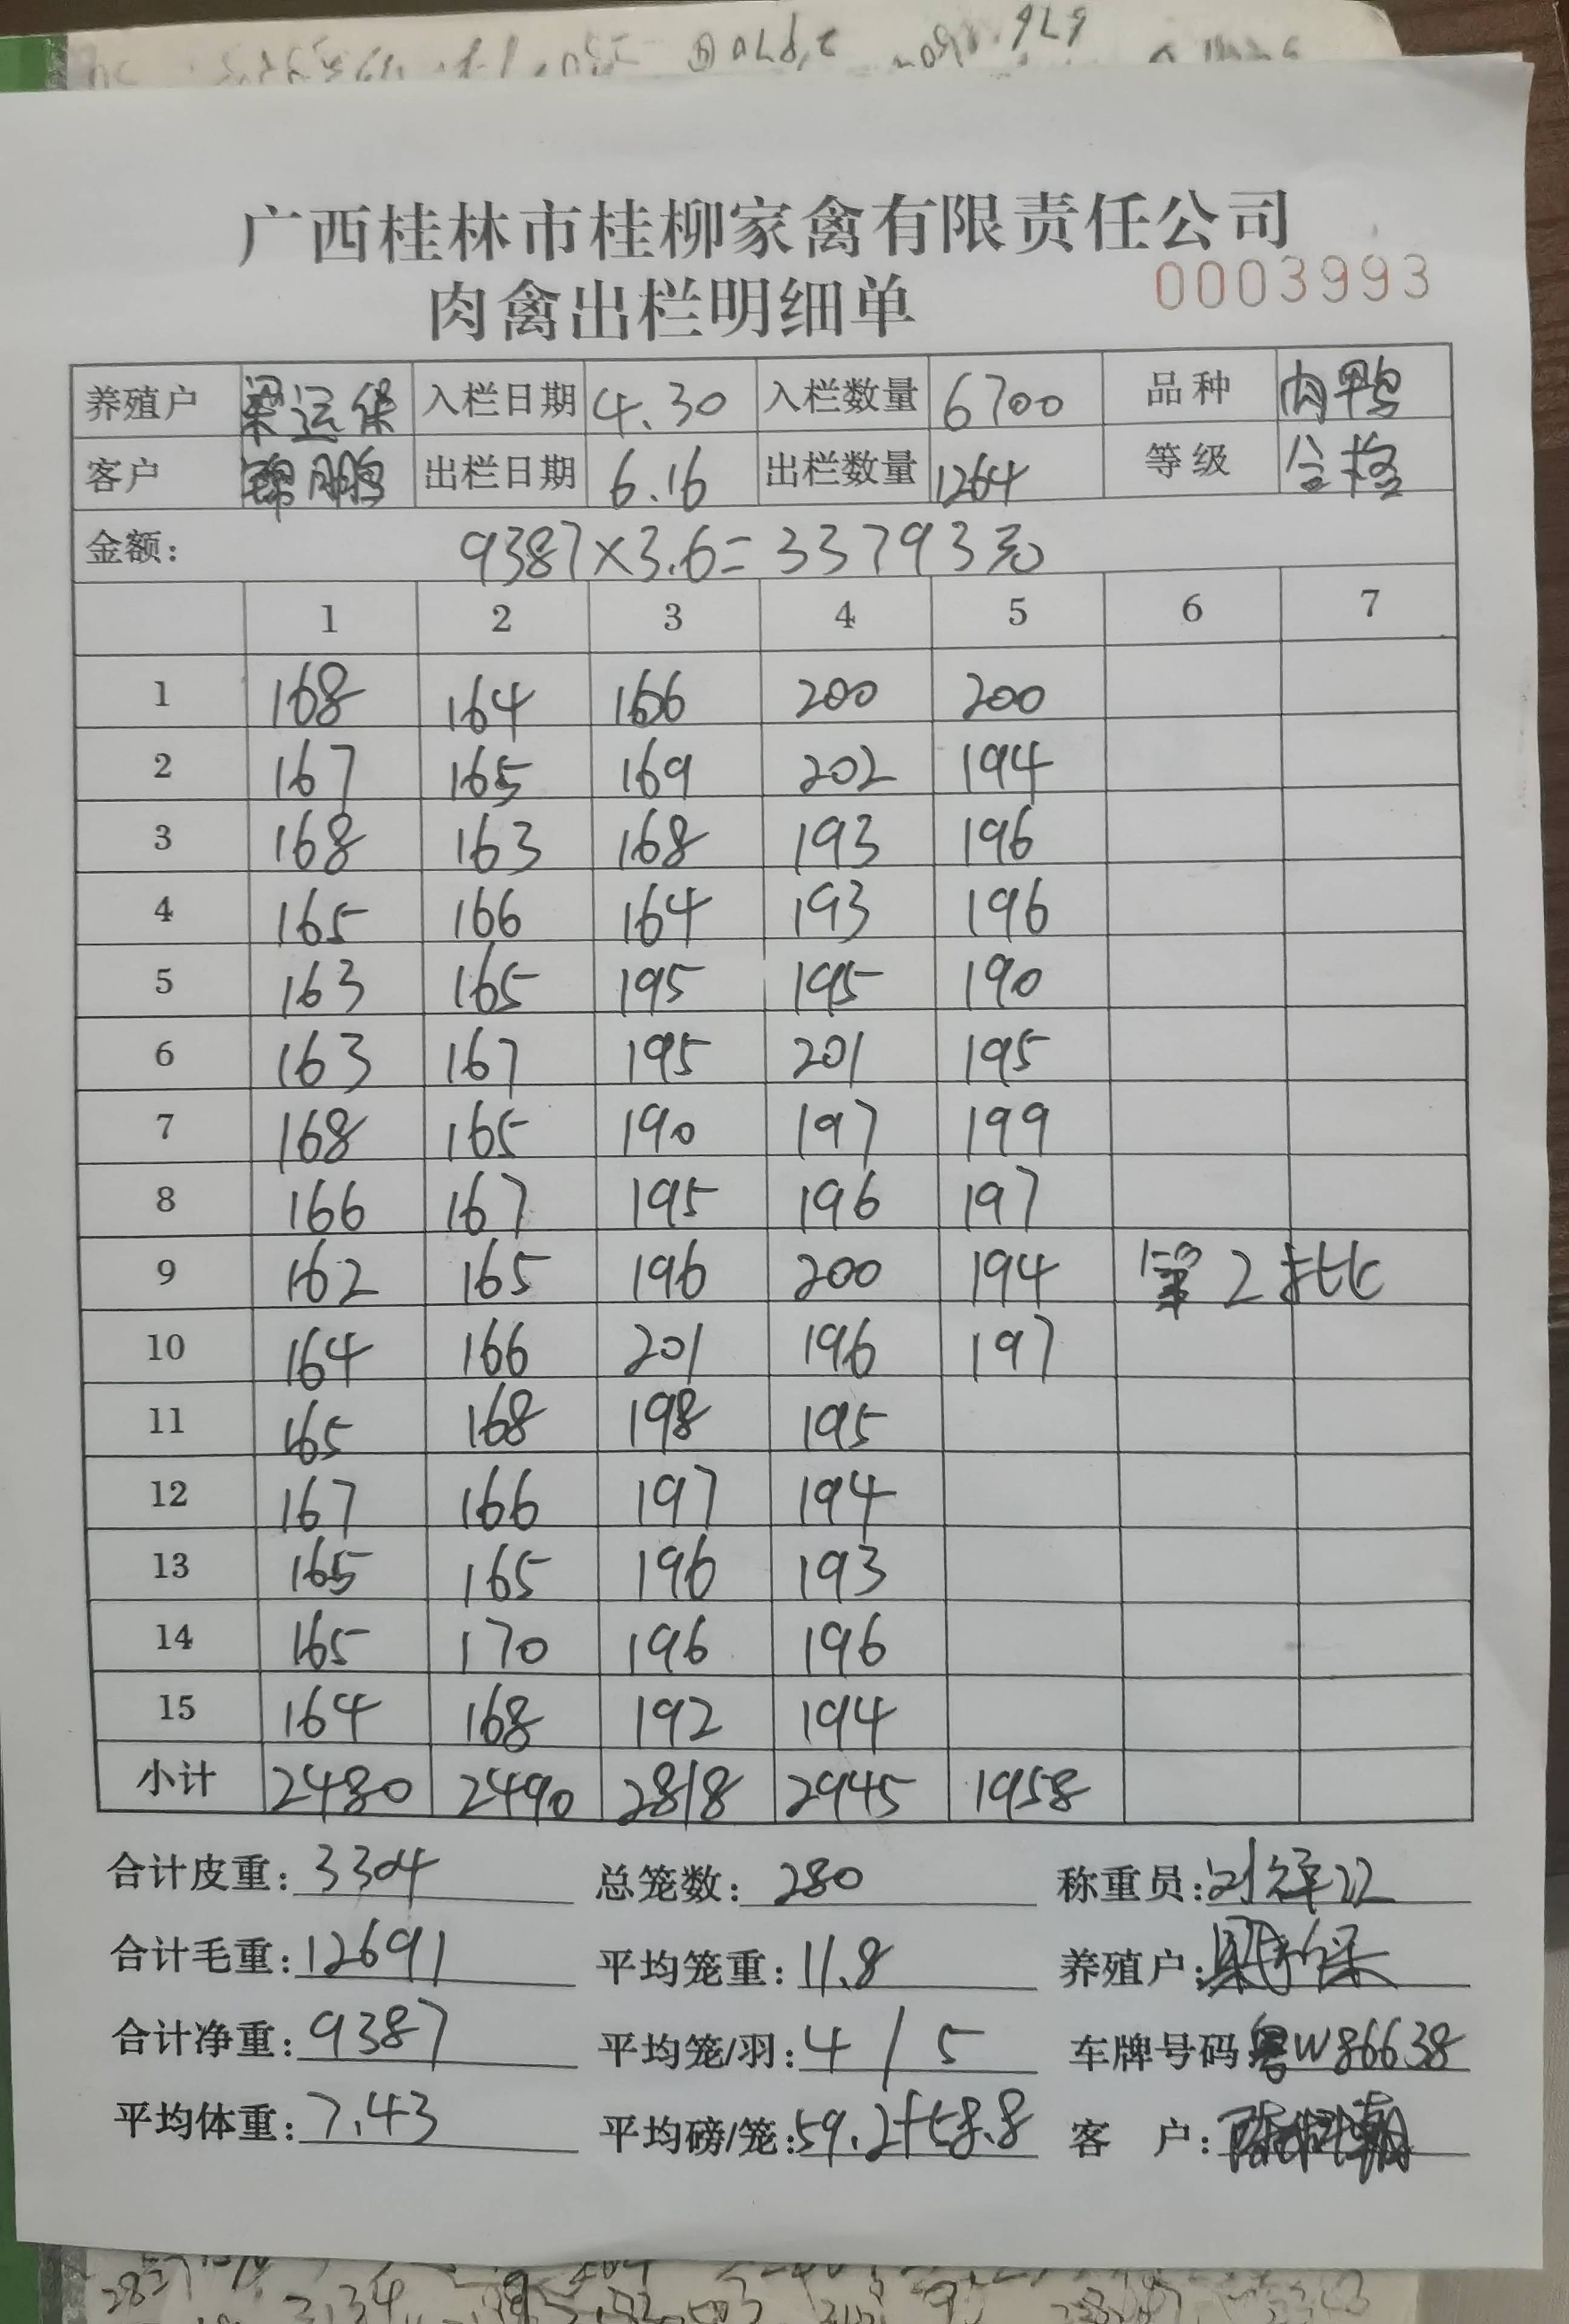 广西桂林市桂柳家禽有限责任公司
肉禽出栏明细单 0003993
养殖户 梁运保 入栏日期 4.30 入栏数量 6700 品种 肉鸭
客户 锦鹏 出栏日期 6.16 出栏数量 1264 等级 合格
金额: 9387×3.6=33793元
1 2 3 4 5 6 7
1 168 164 166 200 200
2 167 165 169 202 194
3 168 163 168 193 196
4 165 166 164 193 196
5 163 165 195 195 190
6 163 167 195 201 195
7 168 165 190 197 199
8 166 167 195 196 197
9 162 165 196 200 194 第2批
10 164 166 201 196 197
11 165 168 198 195
12 167 166 197 194
13 165 165 196 193
14 165 170 196 196
15 164 168 192 194
小计 2480 2490 2818 2945 1958
合计皮重: 3304 总笼数: 280 称重员:
合计毛重: 12691 平均笼重: 11.8 养殖户:
合计净重: 9387 平均笼/羽: 4/5 车牌号码 粤W86638
平均体重: 7.43 平均磅/笼: 59.2+58.8 客户: